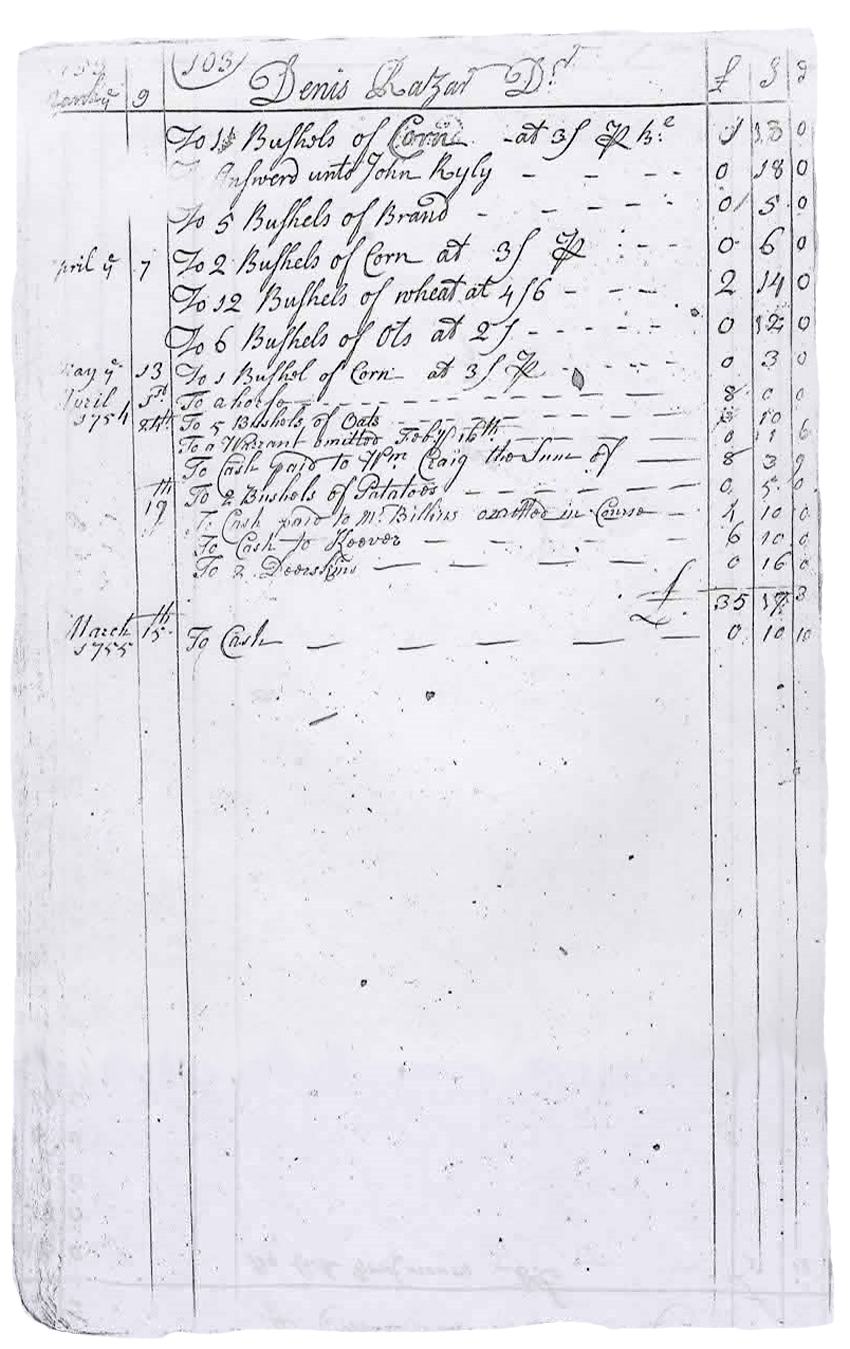 103 Denis Razar Dr £ S D
9
To 1 Bushels of Corn - at 3s ⅌ 0 13 0
Answerd unto John Ryly - - - - 0 18 0
To 5 Bushels of Brand - - - - 0 5 0
April ye 7 To 2 Bushels of Corn at 3s ⅌ - - - 0 6 0
To 12 Bushels of wheat at 4s6 - - - - 2 14 0
To 6 Bushels of Ots at 2s - - - - - 0 12 0
May ye 13 To 1 Bushel of Corn at 3s ⅌ - - - 0 3 0
April 1st To a horse - - - - 8 0 0
1754 To 5 Bushels of Oats - - - - 10
To a Warrant omitted Feby 16th - - - 0 1 6
To Cash paid to Wm Craig the Sum of - 8 3 9
To 2 Bushels of Potatoes - - - - 0 5 0
19th To Cash paid to Mr Billins omitted in Course - 4 10 0
To Cash to Keever - - - - 6 10 0
To 2 Deerskins - - - - 0 16 0
£ 35 17 3
March 15th To Cash - - - - 0 10 10
1755